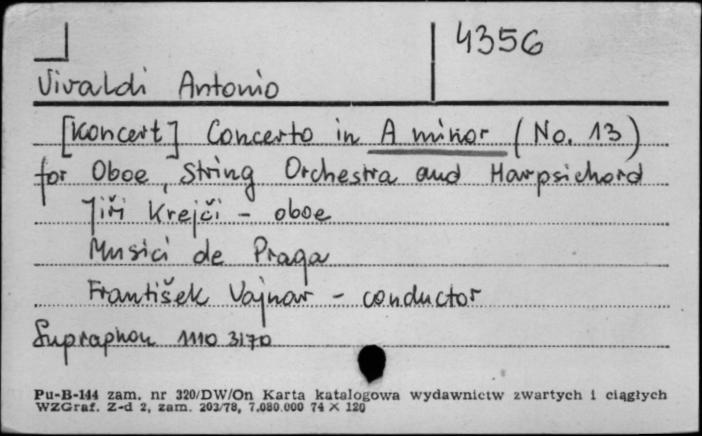 4356
Vivaldi Antonio
[Koncert] Concerto in A minor (No. 13)
for Oboe, String Orchestra and Harpsichord
Jiří Krejči - oboe
Musici de Praga
František Vajnar - conductor
Supraphon 1110 3170
Pu-B-144 zam. nr 320/DW/On Karta katalogowa wydawnictw zwartych i ciągłych
WZGraf. Z-d 2, zam. 203/78, 7.080.000 74 × 120